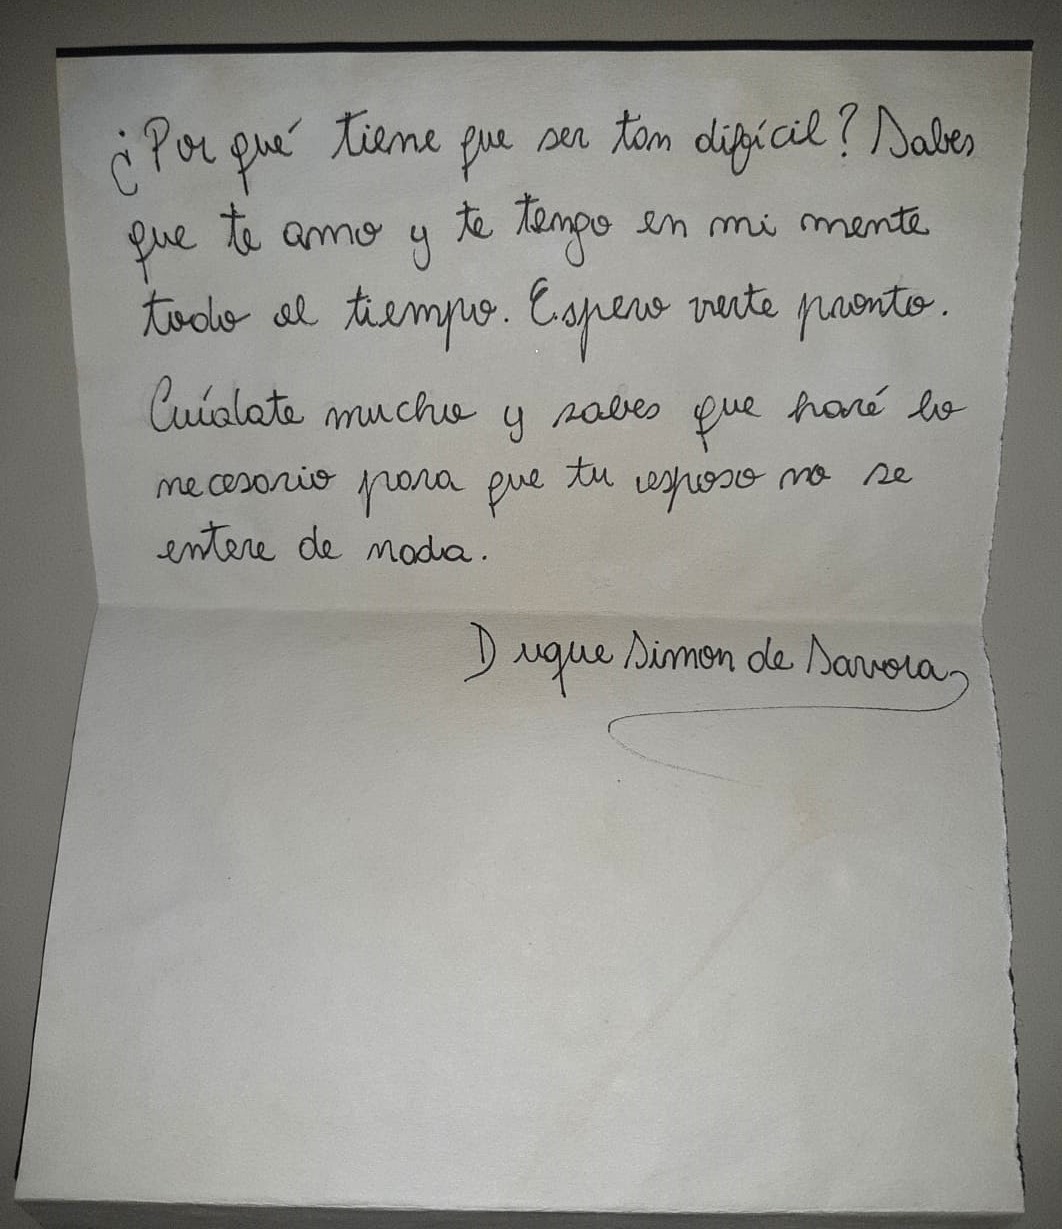 ¿Por qué tiene que ser tan difícil? Sabes
que te amo y te tengo en mi mente
todo el tiempo. Espero verte pronto.
Cuídate mucho y sabes que haré lo
necesario para que tu esposo no se
entere de nada.
Duque Simon de Savora